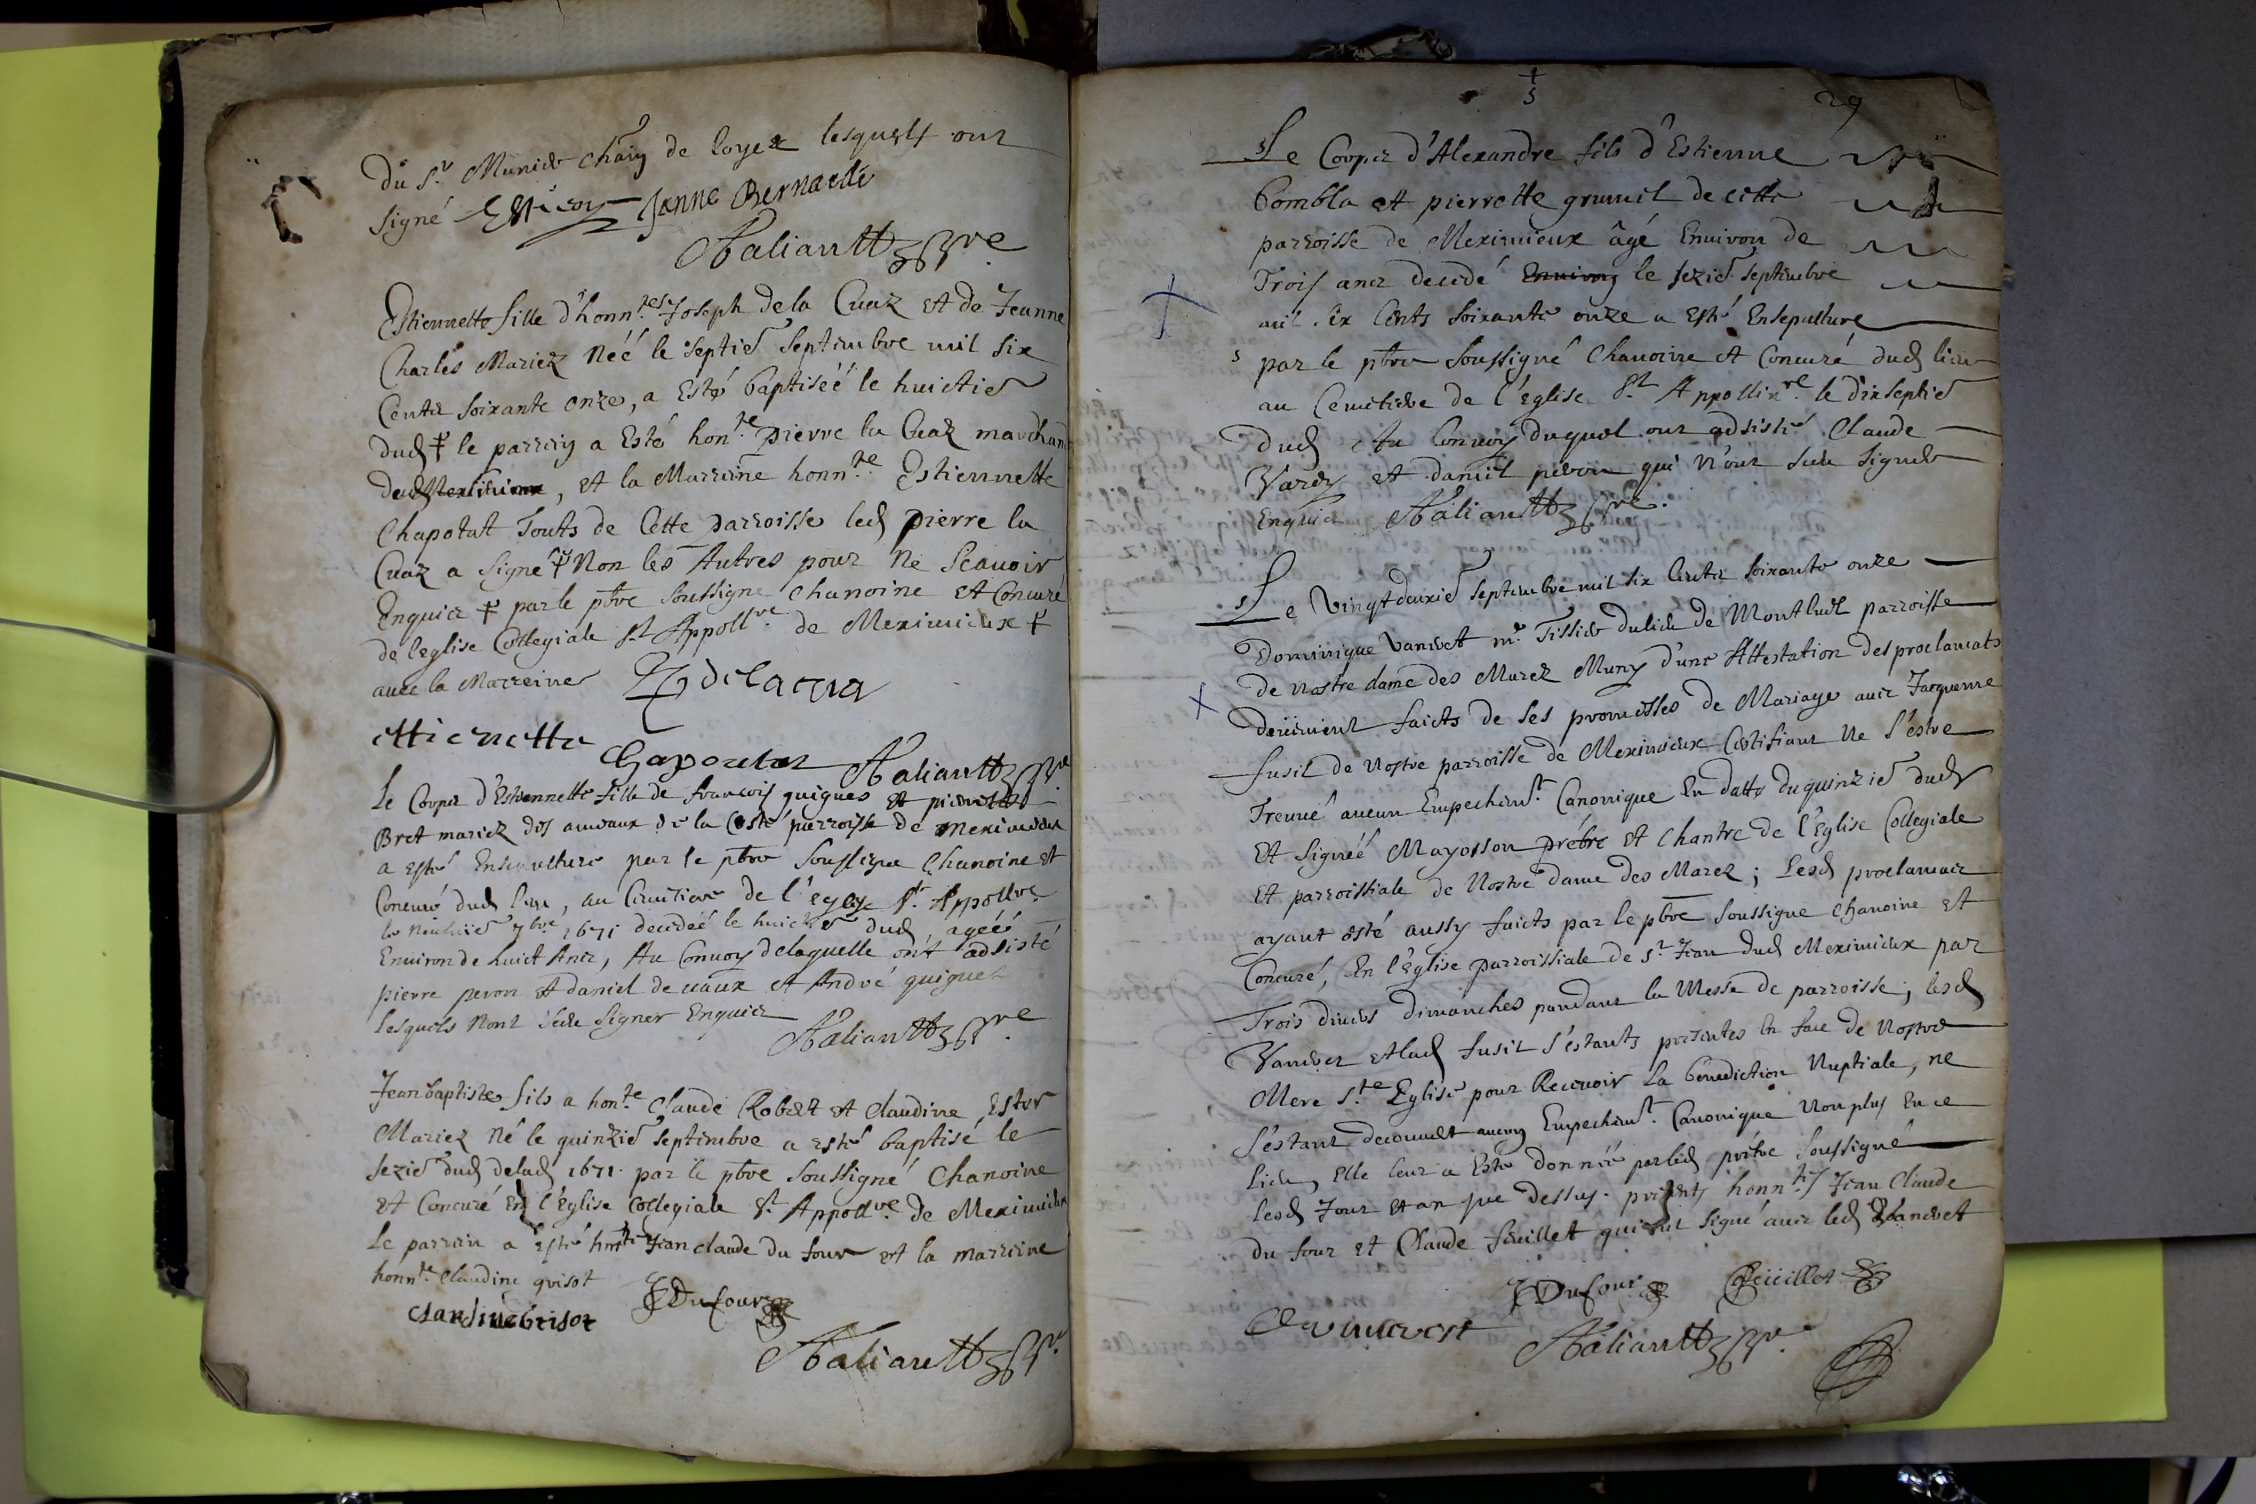 Du Sr. Munier chāng de loyer lesquels ont
signé Janne Bernarde
Aaliantt Pbre.
Estiennette fille d'honn.tes Joseph de la Cuaz et de Jeanne
Charles Mariez Néé le septie septembre mil six
Centz soixante onze, a Esté baptiséé le huictie
dud ☨ le parrein a Esté hon.te pierre la Cuaz marchant
, et la Marreine honn.te Estiennette
Chapotat Touts de Cette parroisse led pierre la
Cuaz a signé ☨ Non les Autres pour Ne Scauoir
Enquis ☨ par le pbre soussigne Chanoine et Concuré
de l'eglise Collegiale St Appoll.re de Meximieux ☨
auec la Marreine P delacua
ettienette
Chapoutat Aaliantt Pbre
Le Corps d'Estiennette fille de francois guigues et pierrette
Bret mariez des ameaux de la Coste parroisse de Meximieux
a esté Ensepulture par le pbre soussigne Chanoine et
Concuré dud lieu, au Cimitiere de l'eglise St. Appoll.re
le Neufuie 7bre 1671 decedéé le huictie dud, agéé
Environ de huict Ans, Au Conuoy delaquelle ont adsisté
pierre peron et daniel deuaux et André guigues
lesquels Nont sceu signer Enquis
Aaliantt Pbre
Jean baptiste fils a hon.te Claude Robert et Claudine Ester
Mariez Né le quinzie septembre a esté baptisé le
sezie dud delad 1671. par le pbre soussigné Chanoine
et Concuré En l'Eglise Collegiale St Appoll.re de Meximieux
Le parrein a esté hon.te Jean claude du four et la marreine
honn.te Claudine grisot
claudine grisot JCDufour
Aaliantt Pbre
29
Le Corps d'Alexandre fils d'Estienne
bombla et pierrette grumel de cette
parroisse de Meximieux âgé Enuiron de
Trois ans decedé Enuiron le sezie septembre
mil six Cents soixante onze a Esté Ensepulture
par le pbre soussigné Chanoine et Concuré dud lieu
au Cemetiere de l'église St Appollin.re le dixseptie
dud Au Conuoy duquel ont adsisté Claude
Varey et daniel peron qui N'ont sceu signer
Enquis Aaliantt Pbre.
Le Vingtdeuxie septembre mil six Centz soixante onze
Dominique Vanvert me Tissier dulieu de Montluel parroisse
de Nostre dame des Marez Muny d'une Attestation des proclamats
deüement faicts de ses promesses de Mariage auec Jacquemine
fusil de Nostre parroisse de Meximieux Certifiant Ne s'estre
Treuué aucun Empechemt. Canonique En datte du quinzie dud
et signéé Mayosson prébre et Chantre de l'Eglise Collegiale
et parroissiale de Nostre dame des Marez; Lesd proclamats
ayant esté aussy faicts par le pbre soussigne chanoine et
Concuré, En l'Eglise parroissiale de St Jean dud Meximieux par
Trois diuers dimanches pandant la Messe de parroisse; lesd
Vanvert et lad fusil s'estants presentes En face de Nostre
Mere S.te Eglise pour Receuoir La benediction Nuptiale, ne
s'estant decouuert aucun Empechemt. Canonique Non plus En ce
lieu, Elle leur a Esté donnée par led prétre soussigné
lesd Jour et an que dessus. presents honn.tes Jean Claude
du four et Claude feuillet qui ont signé auec led Vanvert
JCDufour CFeüillet
D vanvert Aaliantt Pbre.